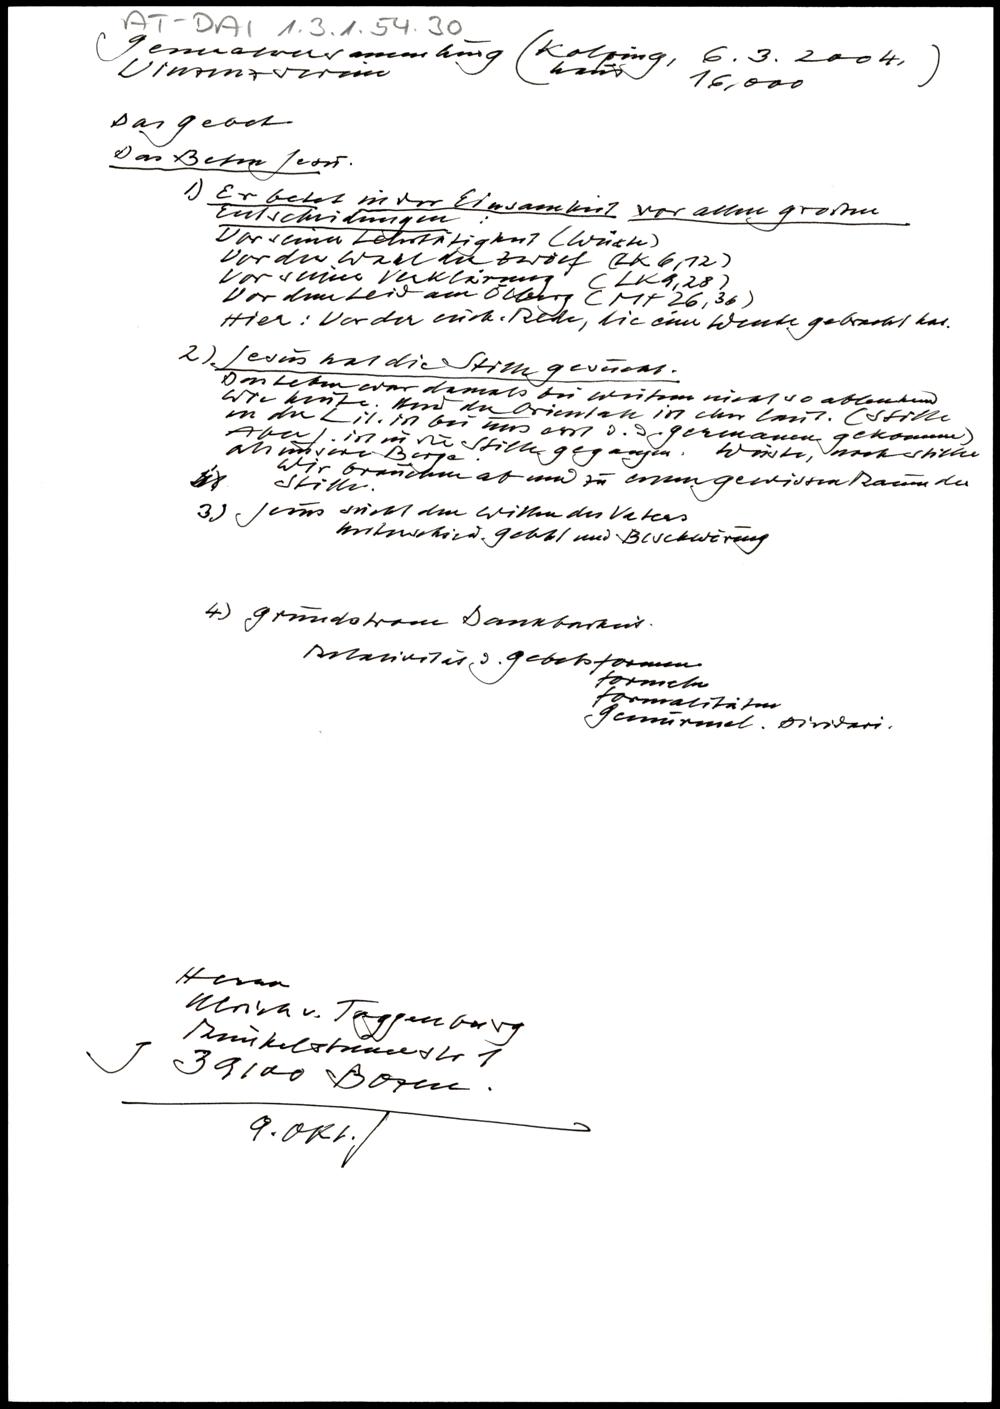 AT-DAI 1.3.1.54.30
Generalversammlung (Kolping, 6.3.2004,)
Vinzenzverein haus 16,000
Das Gebet
Das Beten Jesu.
1) Er betet in der Einsamkeit vor allen großen
Entscheidungen:
Vor seiner Lehrtätigkeit (Wüste)
Vor der Wahl der Zwölf (LK 6,12)
Vor seiner Verklärung (LK 9,28)
Vor dem Leid am Ölberg (Mt 26,36)
Hier: Vor der euch. Rede, die eine Wende gebracht hat.
2) Jesus hat die Stille gesucht.
Das Leben war damals bei weitem nicht so ablenkend
wie heute. Und der Orientale ist eher laut. (Stille
in der Lit. ist bei uns erst d. d. Germanen gekommen)
Aber J. ist in die Stille gegangen. Wüste, noch stiller
als unsere Berge.
Wir brauchen ab und zu einen gewissen Raum der
Stille.
3) Jesus sucht den Willen des Vaters
Unterschied. Gebet und Beschwörung
4) Grundstrom Dankbarkeit.
Relativität d. Gebetsformen
formeln
formalitäten
Gemurmel.
Herrn
Ulrich v. Toggenburg
Runkelsteinerstr 1
39100 Bozen.
9. Okt.